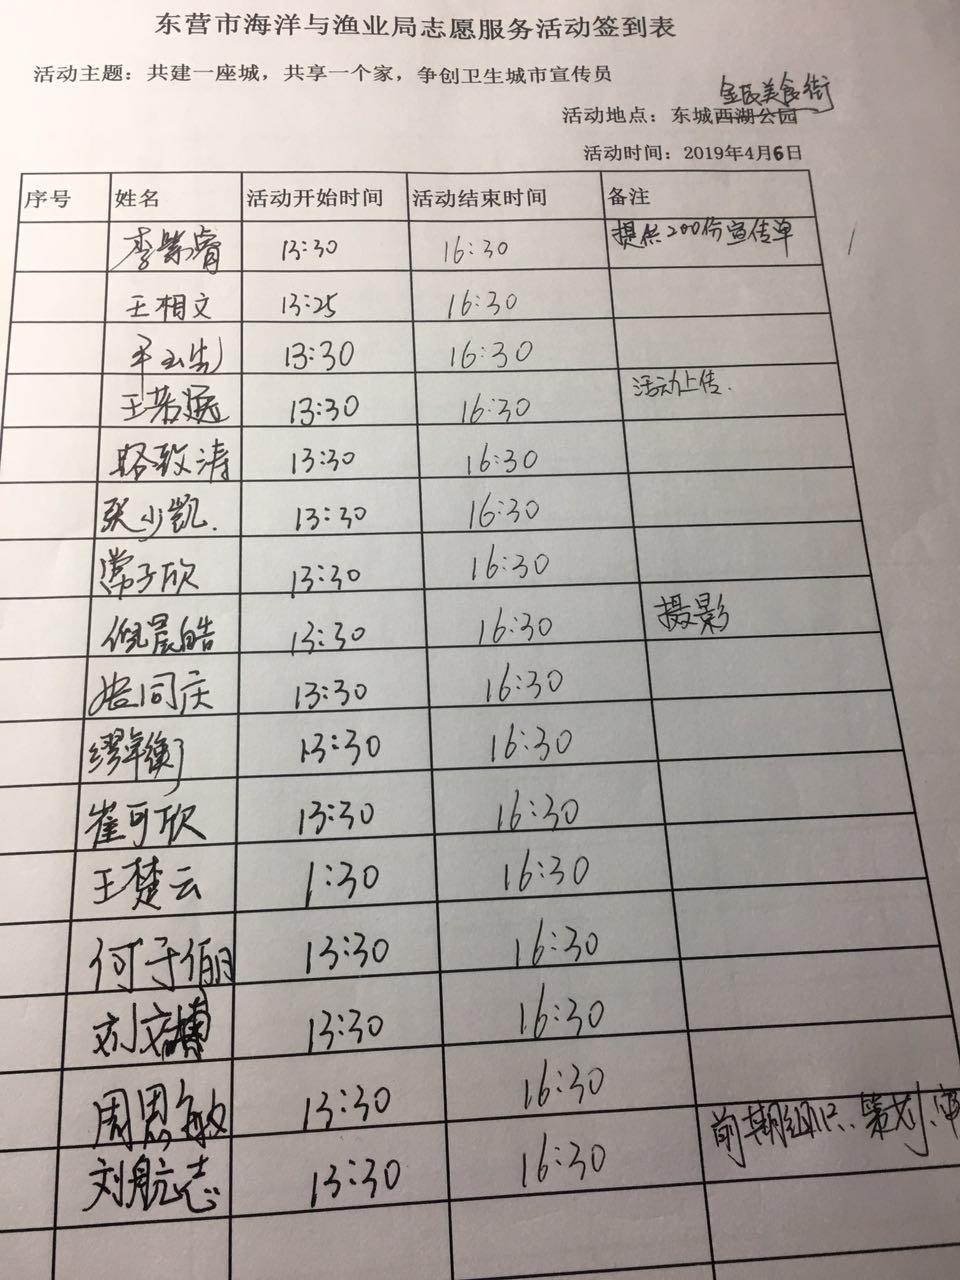 东营市海洋与渔业局志愿服务活动签到表
活动主题：共建一座城，共享一个家，争创卫生城市宣传员
金辰美食街
活动地点：东城西湖公园
活动时间：2019年4月6日
序号 姓名 活动开始时间 活动结束时间 备注
李紫睿 13:30 16:30 提供200份宣传单
王相文 13:25 16:30
13:30 16:30
王若涵 13:30 16:30 活动上传.
路致涛 13:30 16:30
张少凯. 13:30 16:30
常子欣 13:30 16:30
倪晨皓 13:30 16:30 摄影
同庆 13:30 16:30
缪奕衡 13:30 16:30
崔可欣 13:30 16:30
王楚云 1:30 16:30
何子俪 13:30 16:30
刘文博 13:30 16:30
周思敏 13:30 16:30
刘航志 13:30 16:30 前期组织、策划、